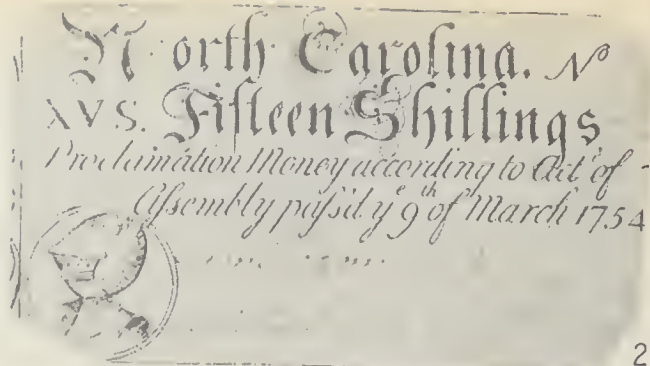 North Carolina. No
XVS. Fifteen Shillings
Proclamation Money according to Act of
Assembly passd. ye 9th of March 1754
2